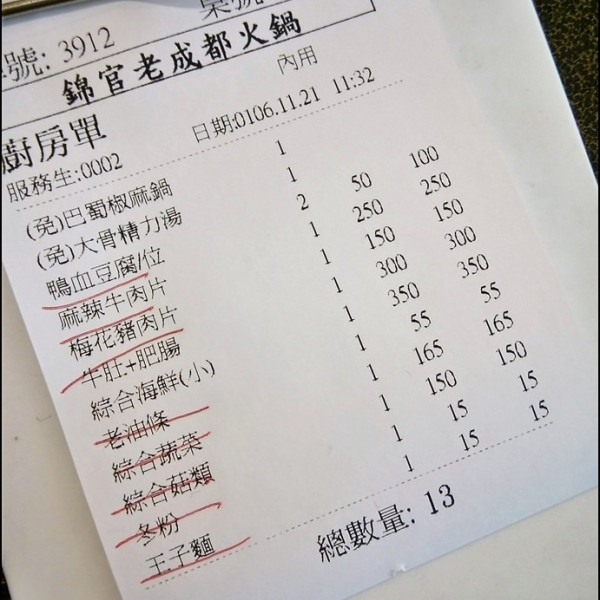 號: 3912 桌號
錦官老成都火鍋
內用
廚房單
日期:0106.11.21 11:32
服務生:0002
(免)巴蜀椒麻鍋 1
(免)大骨精力湯 1
鴨血豆腐/位 2 50 100
麻辣牛肉片 1 250 250
梅花豬肉片 1 150 150
牛肚+肥腸 1 300 300
綜合海鮮(小) 1 350 350
老油條 1 55 55
綜合蔬菜 1 165 165
綜合菇類 1 150 150
冬粉 1 15 15
王子麵 1 15 15
總數量: 13